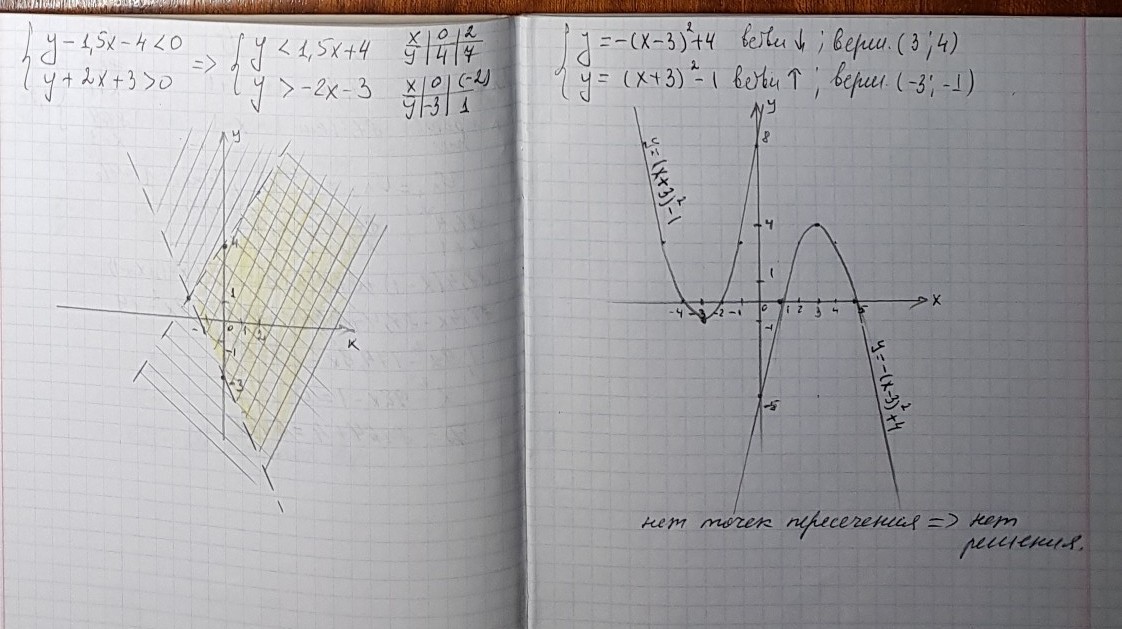 y-1,5x-4<0 => y<1,5x+4 x 0 2
y+2x+3>0 y>-2x-3 y 4 7
x 0 (-2)
y -3 1
y
4
1
-1 0 1 2
x
-1
-3
y=-(x-3)²+4 ветви ↓; верш. (3; 4)
y=(x+3)²-1 ветви ↑; верш. (-3; -1)
y
8
y=(x+3)²-1
4
1
-4 -3 -2 -1 0 1 2 3 4 5 x
-1
-5
y=-(x-3)²+4
нет точек пересечения => нет
решения.